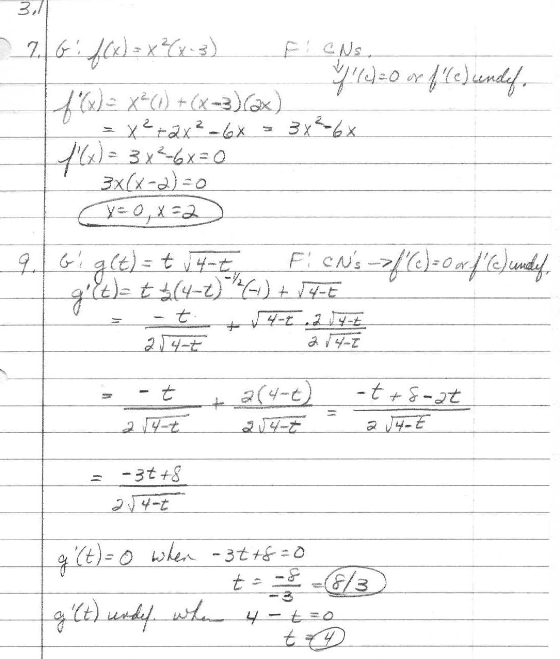 3.1
7. G: f(x) = x²(x-3) F: CNs.
↓
f'(c)=0 or f'(c) undef.
f'(x) = x²(1) + (x-3)(2x)
= x² + 2x² - 6x = 3x² - 6x
f'(x) = 3x² - 6x = 0
3x(x-2) = 0
x=0, x=2
9. G: g(t) = t √(4-t) F: CN's → f'(c)=0 or f'(c) undef.
g'(t) = t ½(4-t)^(-1/2)(-1) + √(4-t)
= -t/(2√(4-t)) + √(4-t) · 2√(4-t)/(2√(4-t))
= -t/(2√(4-t)) + 2(4-t)/(2√(4-t)) = (-t+8-2t)/(2√(4-t))
= (-3t+8)/(2√(4-t))
g'(t)=0 when -3t+8=0
t = -8/-3 = 8/3
g'(t) undef. when 4-t=0
t = 4